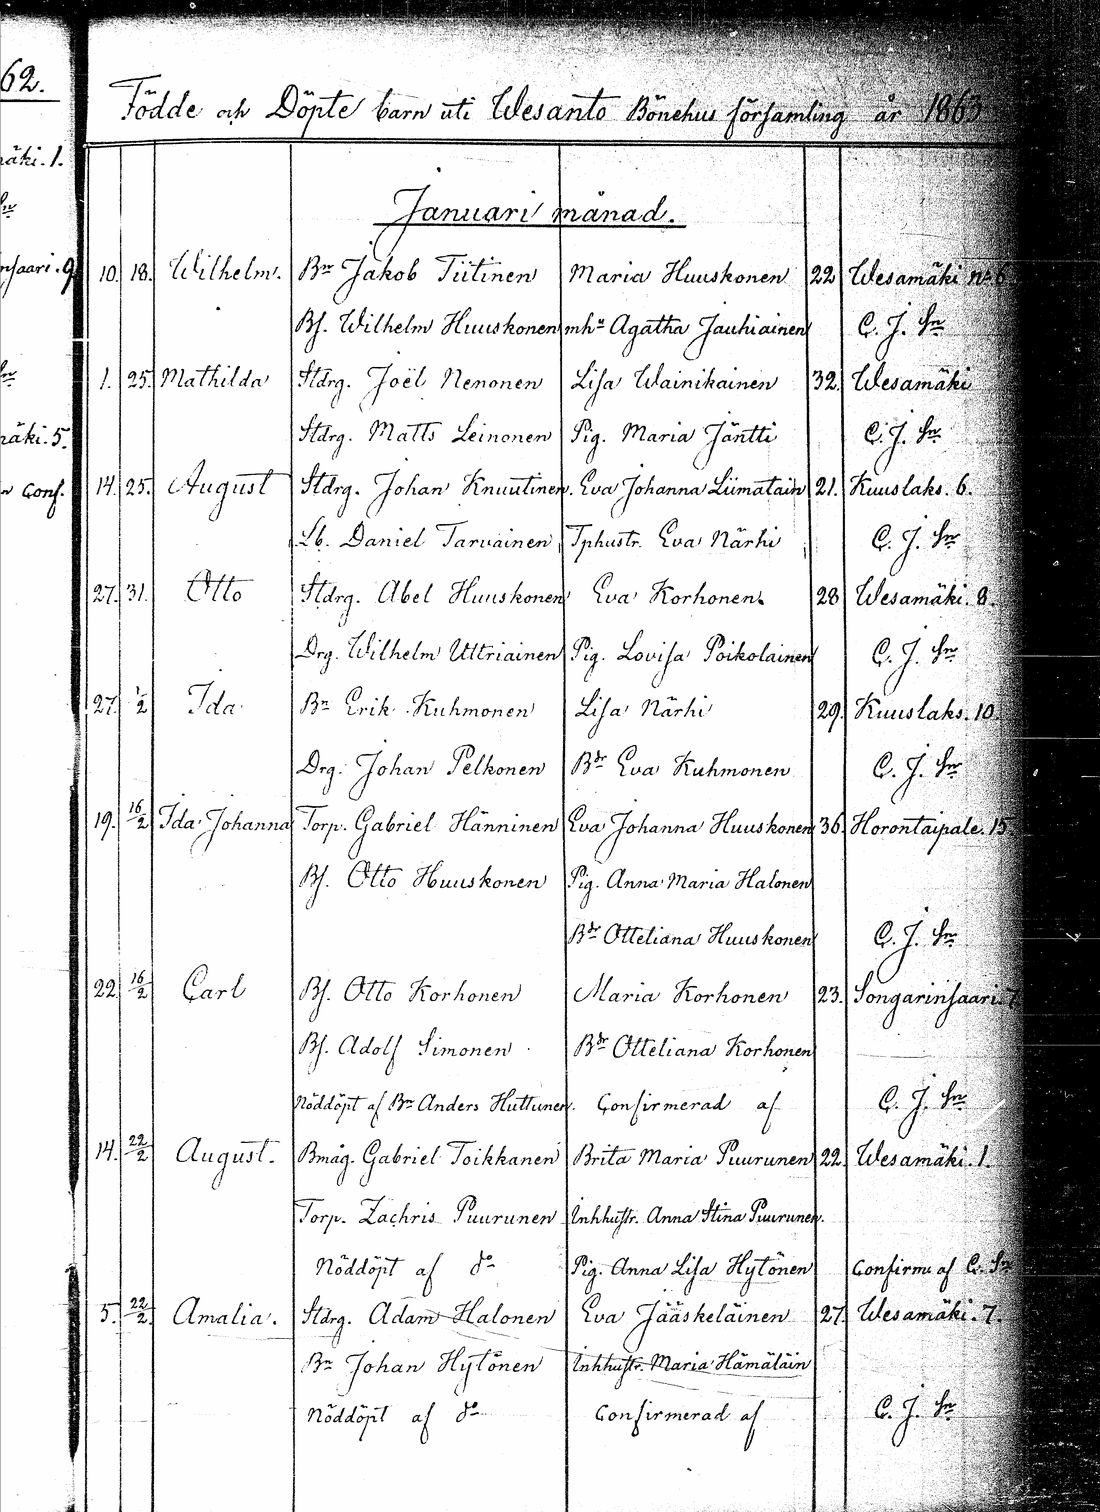 62.
Födde och Döpte barn uti Wesanto Bönehus församling år 1863
Januari månad.
10. 18. Wilhelm. Bn Jakob Tiitinen Maria Huuskonen 22 Wesamäki no 6
Bs. Wilhelm Huuskonen mhu Agatha Jauhiainen C. J. Sn
1. 25. Mathilda Stdrg. Joël Nenonen Lisa Wainikainen 32. Wesamäki
Stdrg. Matts Leinonen Pig. Maria Jäntti C. J. Sn
14. 25. August Stdrg. Johan Knuutinen. Eva Johanna Liimatain 21. Kuuslaks. 6.
Lb. Daniel Tarvainen Tphustr. Eva Närhi C. J. Sn
27. 31. Otto Stdrg. Abel Huuskonen Eva Korhonen. 28 Wesamäki. 8.
Drg. Wilhelm Uttriainen Pig. Lovisa Poikolainen C. J. Sn
27. 1/2 Ida Bn Erik Kuhmonen Lisa Närhi 29. Kuuslaks. 10.
Drg. Johan Pelkonen Bdr Eva Kuhmonen C. J. Sn
19. 16/2 Ida Johanna Torp. Gabriel Hänninen Eva Johanna Huuskonen 36. Horontaipale. 15.
Bs. Otto Huuskonen Pig. Anna Maria Halonen
Bdr Otteliana Huuskonen C. J. Sn
22. 16/2 Carl Bs. Otto Korhonen Maria Korhonen 23. Songarinsaari. 7.
Bs. Adolf Simonen Bdr Otteliana Korhonen
Nöddöpt af Bn Anders Huttunen. Confirmerad af C. J. Sn
14. 22/2 August. Bmåg. Gabriel Toikkanen Brita Maria Puurunen 22. Wesamäki. 1.
Torp. Zachris Puurunen Inhhustr. Anna Stina Puurunen.
Nöddöpt af do Pig. Anna Lisa Hytönen Confirm af C. Sn
5. 22/2 Amalia. Stdrg. Adam Halonen Eva Jääskeläinen 27. Wesamäki. 7.
Bn Johan Hytönen Inhhustr. Maria Hämäläin
Nöddöpt af do Confirmerad af C. J. Sn